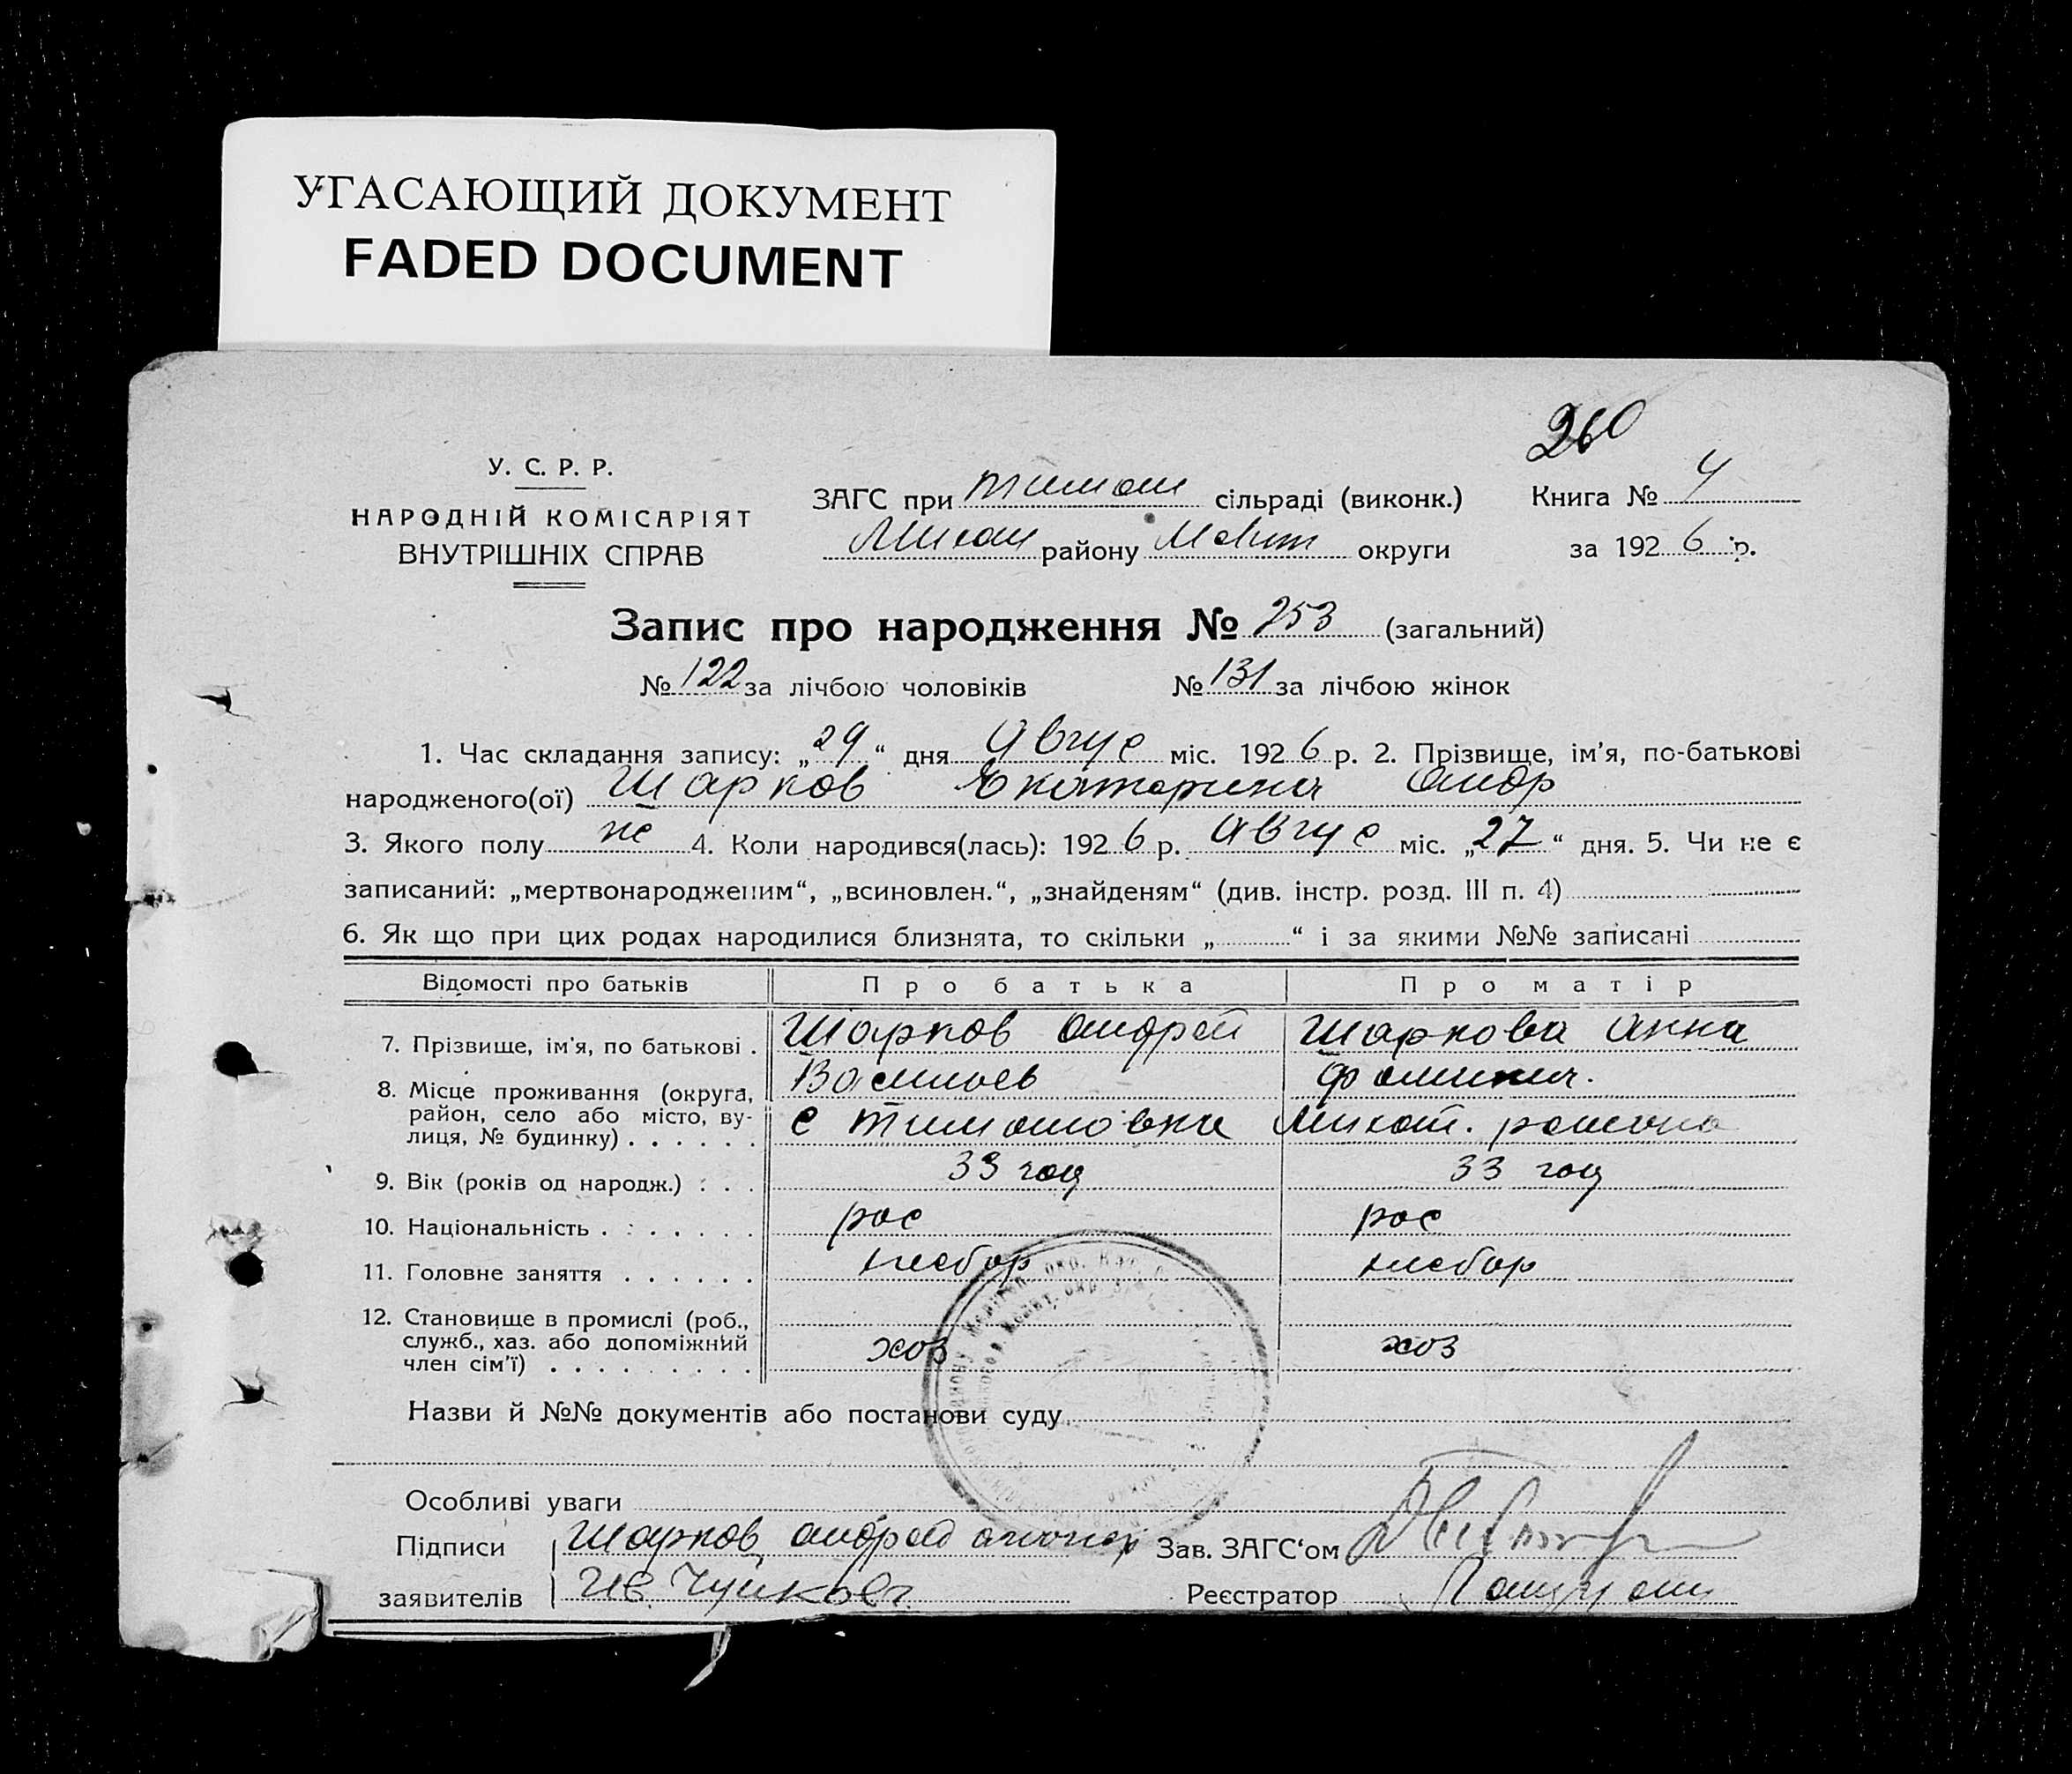 УГАСАЮЩИЙ ДОКУМЕНТ
FADED DOCUMENT
260
У. С. Р. Р.
НАРОДНІЙ КОМІСАРІЯТ
ВНУТРІШНІХ СПРАВ
ЗАГС при Тимош сільраді (виконк.)
району Меліт округи
Книга № 4
за 1926 р.
Запис про народження № 253 (загальний)
№ 122 за лічбою чоловіків № 131 за лічбою жінок
1. Час складання запису: „29“ дня Авгус міс. 1926 р. 2. Прізвище, ім'я, по-батькові
народженого(ої) Шарков Екатерина Андр
3. Якого полу же 4. Коли народився(лась): 1926 р. Авгус міс. „27“ дня. 5. Чи не є
записаний: „мертвонародженим“, „всиновлен.“, „знайденям“ (див. інстр. розд. III п. 4)
6. Як що при цих родах народилися близнята, то скільки „ “ і за якими №№ записані
Відомості про батьків Про батька Про матір
7. Прізвище, ім'я, по батькові . Шарков Андрей Шаркова Анна
Васильев Фомини.
8. Місце проживання (округа, район, село або місто, вулиця, № будинку) . . . . . . с Тимошовка района
9. Вік (років од народж.) : . . 33 год 33 год
10. Національність . . . . . . . рос рос
11. Головне заняття . . . . . . хлебор хлебор
12. Становище в промислі (роб.,
служб., хаз. або допоміжний
член сім'ї) . . . . . . . . . хоз хоз
Назви й №№ документів або постанови суду
Особливі уваги
Підписи Шарков Андрей Зав. ЗАГС'ом
заявителів Реєстратор